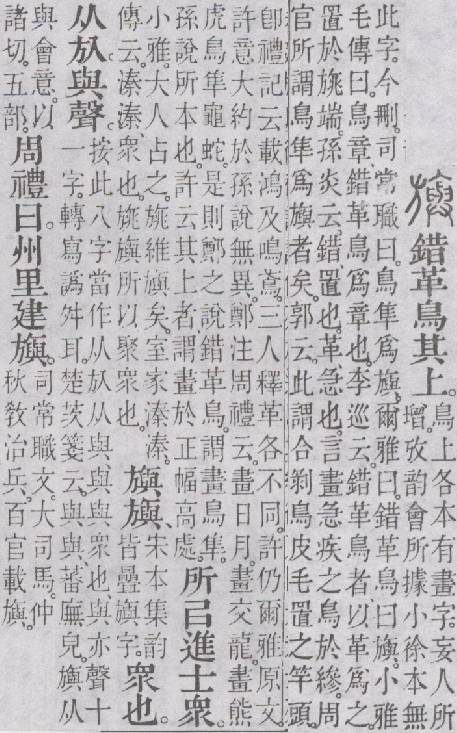 旟錯革鳥其上。鳥上各本有畫字。妄人所
增。攷韵會所據小徐本無
此字。今刪。司常職曰。鳥隼爲旟。爾雅曰。錯革鳥曰旟。小雅
毛傳曰。鳥章。錯革鳥爲章也。李巡云。錯革鳥者以革爲之。
置於旐端。孫炎云。錯置也。革急也。言畫急疾之鳥於縿。周
官所謂鳥隼爲旟者矣。郭云。此謂合剝鳥皮毛置之竿頭。
卽禮記云載鴻及鳴鳶。三人釋革各不同。許仍爾雅原文。
許意大約於孫說無異。鄭注周禮云。畫日月。畫交龍。畫熊
虎鳥隼龜蛇。是則鄭之說錯革鳥。謂畫鳥隼。
孫說所本也。許云其上者。謂畫於正幅高處。
所㠯進士衆。
小雅大人占之。旐維旟矣。室家溱溱。
傳云。溱溱衆也。旐旟所以聚衆也。
旟旟。宋本集韵
皆疊旟字。
衆也。
从㫃與聲。
按此八字當作从㫃从與。與衆也。與亦聲十
一字。轉寫譌舛耳。楚茨箋云。與與。蕃廡皃。旟从
與會意。以
諸切。五部。
周禮曰。州里建旟。
司常職文。大司馬。仲
秋敎治兵。百官載旟。